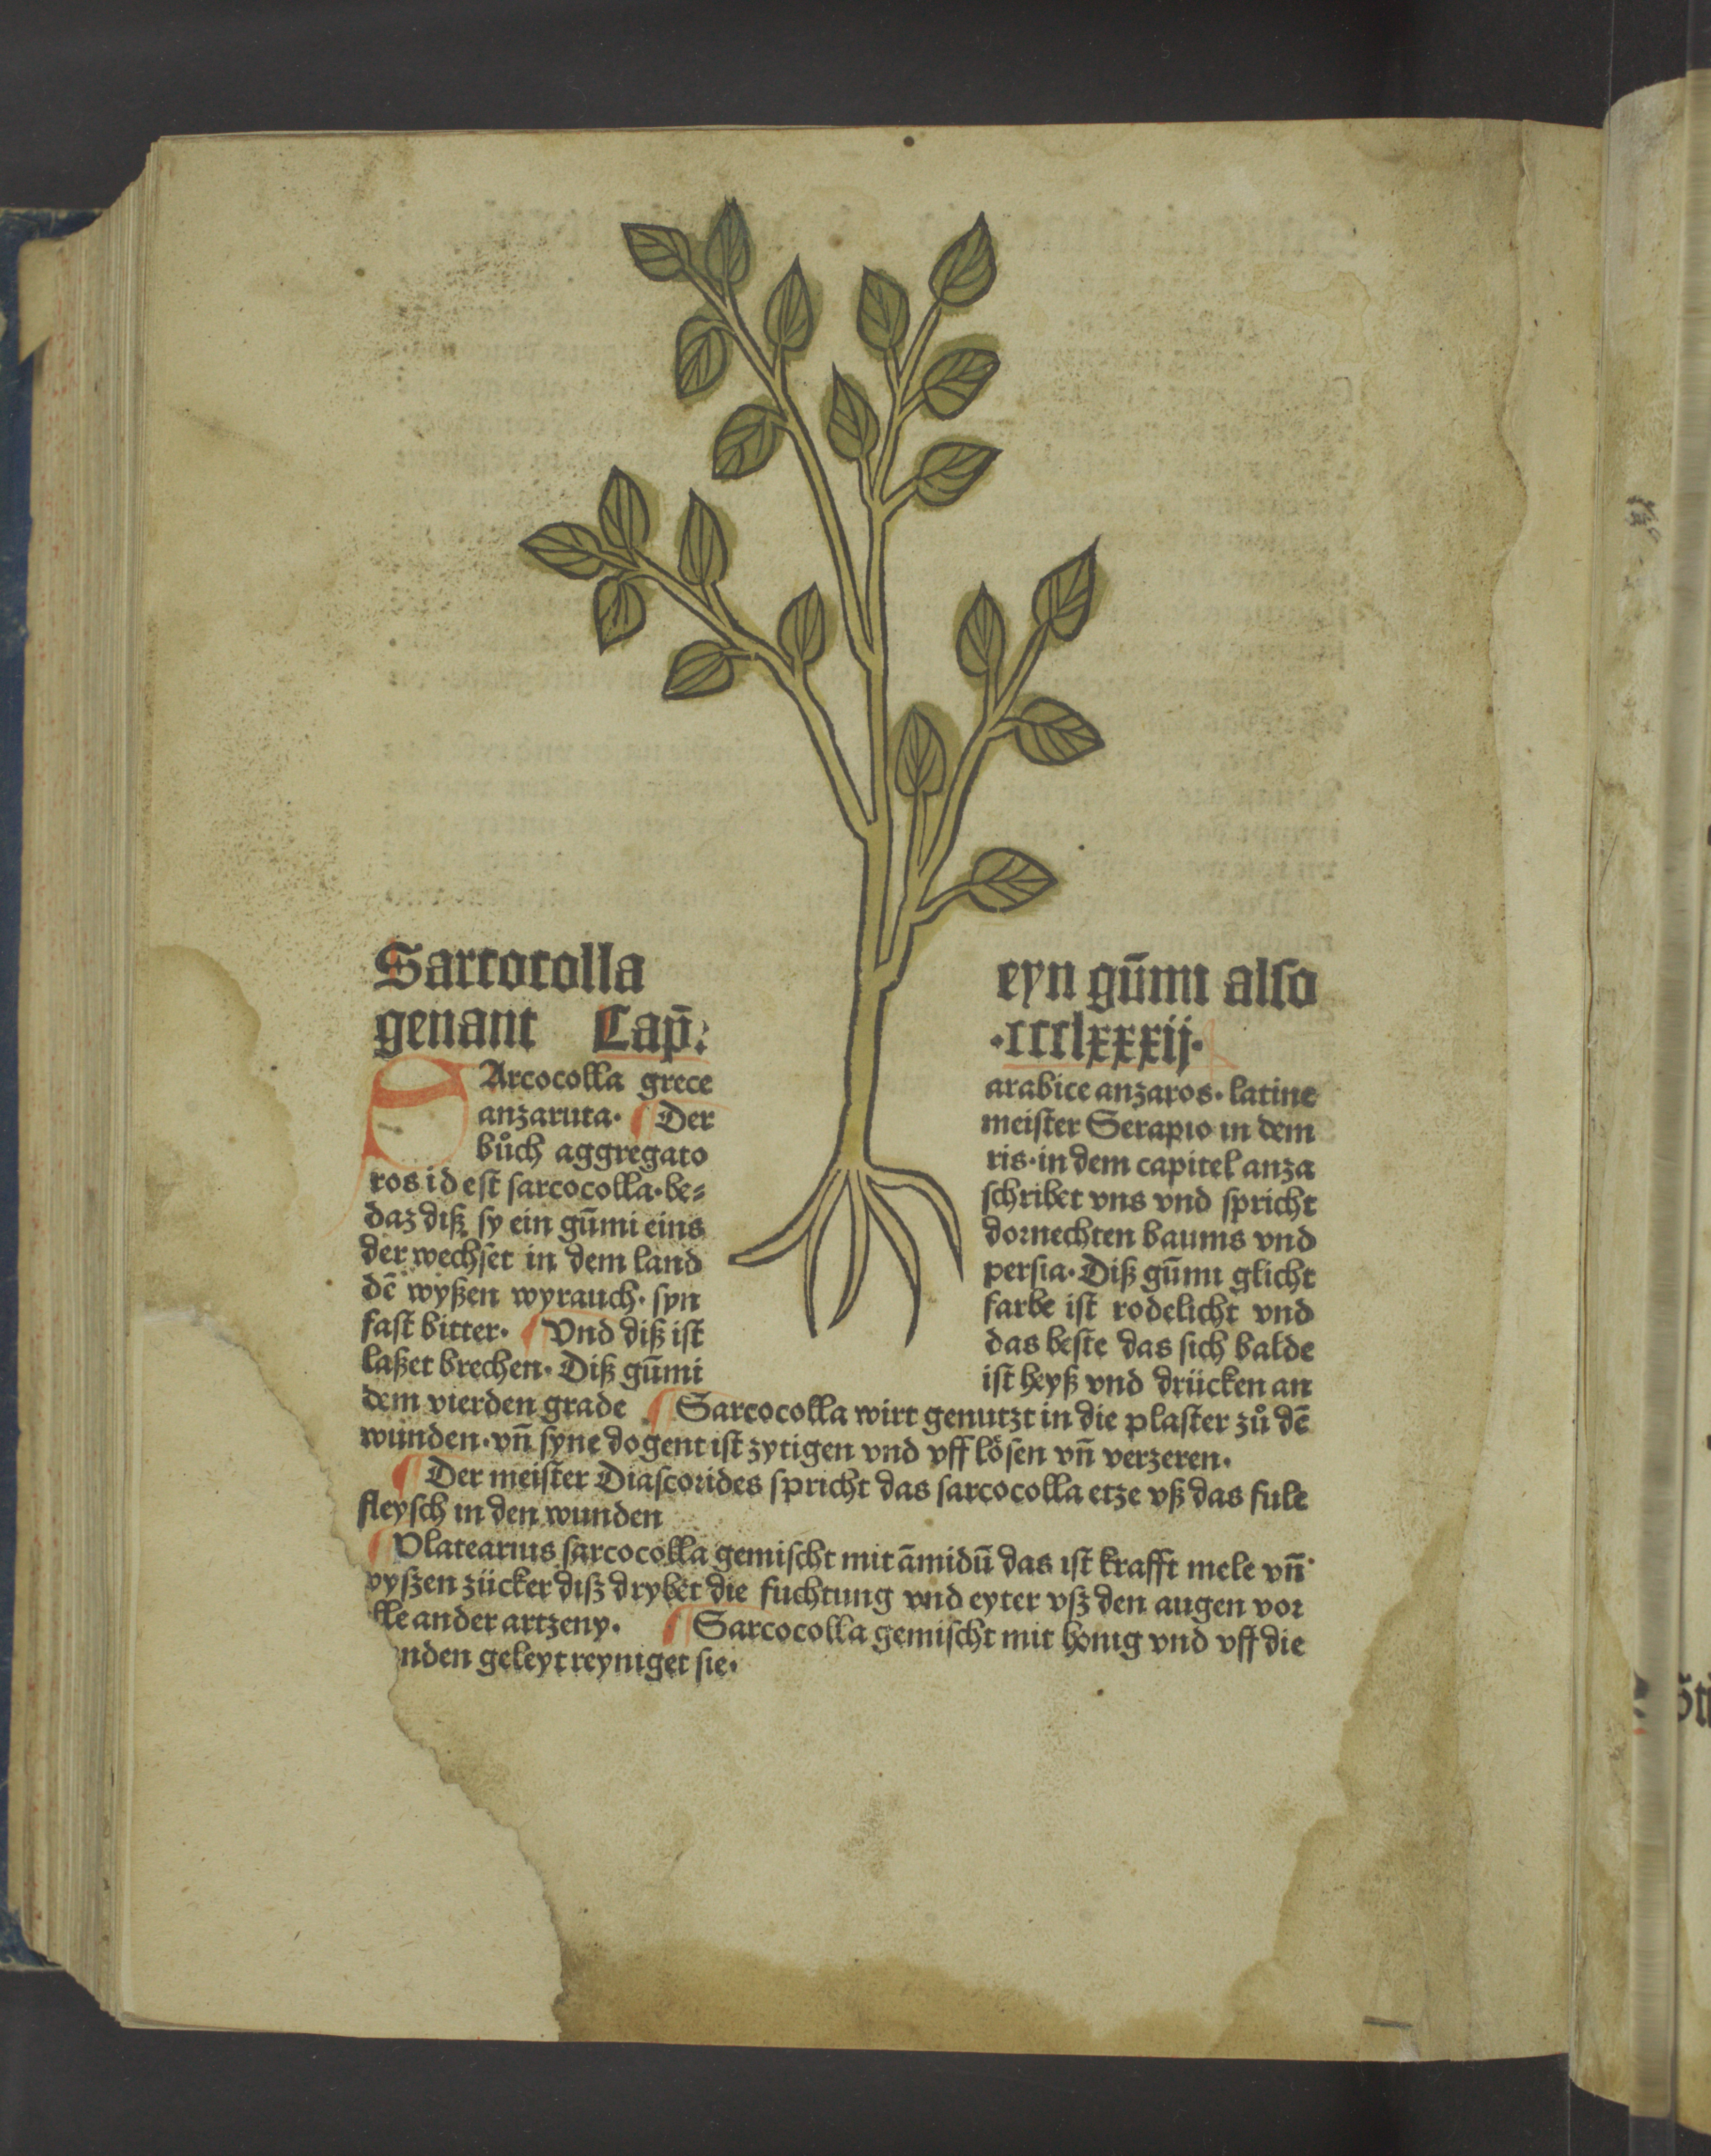 Sarcocolla eyn gūmi also
genant Cap̄: ·ccclxxxij·
SArcocolla grece arabice anzaros· latine
anzaruta· Der meister Serapio in dem
bůch aggregato ris·in dem capitel anza
ros id est sarcocolla·be⸗ schribet vns vnd spricht
daz diß sy ein gūmi eins dornechten baums vnd
der wechset in dem land persia·Diß gūmi glicht
dē wyßen wyrauch· syn farbe ist rodelicht vnd
fast bitter· Vnd diß ist das beste das sich balde
laßet brechen· Diß gūmi ist heyß vnd drücken an
dem vierden grade Sarcocolla wirt genutzt in die plaster zů dē
wunden·vn̄ syne dogent ist zytigen vnd vff lösen vn̄ verzeren·
Der meister Diascorides spricht das sarcocolla etze vß das fule
fleysch in den wunden
Platearius sarcocolla gemischt mit āmidū das ist krafft mele vn̄
vyszen zücker disz drybet die fuchtung vnd eyter vsz den augen vor
lle ander artzeny· Sarcocolla gemischt mit honig vnd vff die
nden geleyt reyniget sie·